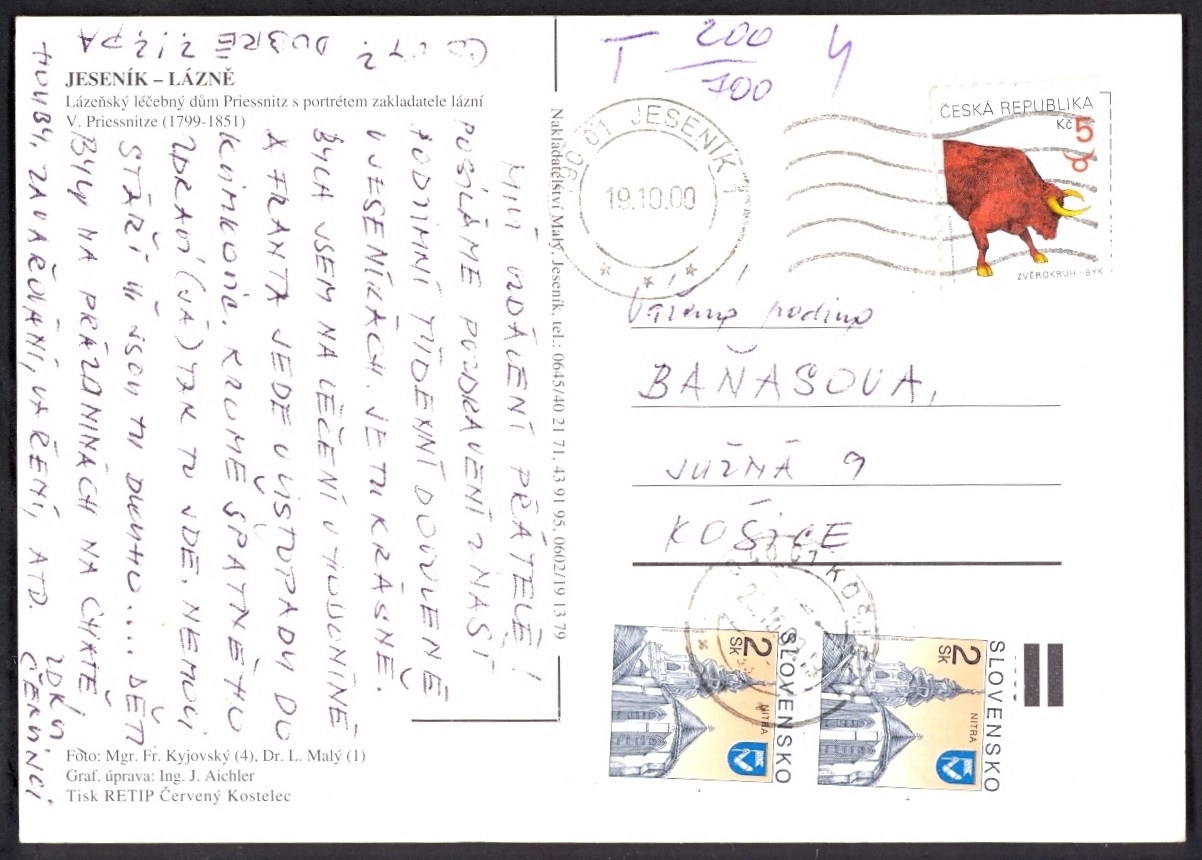 JESENÍK – LÁZNĚ
Lázeňský léčebný dům Priessnitz s portrétem zakladatele lázní
V. Priessnitze (1799-1851)
MILÍ VZDÁLENÍ PŘÁTELÉ!
POSÍLÁME POZDRAVENÍ Z NAŠÍ
PODZIMNÍ TÝDENNÍ DOVOLENÉ
V JESENÍKÁCH. JE TU KRÁSNĚ.
BYLA JSEM NA LÉČENÍ V
A FRANTA JEDE V LISTOPADU DO
KROMĚ ŠPATNÉHO
ZDRAVÍ (JÁ) TAK TO JDE. NEMOCI
STÁŘÍ UŽ JSOU TU DLOUHO.... DĚTI
BYLY NA PRÁZDNINÁCH NA CHATĚ
HOUBY, ZAVAŘOVÁNÍ, VAŘENÍ, ATD.
CO VY? DOBRÉ
Foto: Mgr. Fr. Kyjovský (4), Dr. L. Malý (1)
Graf. úprava: Ing. J. Aichler
Tisk RETIP Červený Kostelec
Nakladatelství Malý, Jeseník, tel.: 0645/40 21 71, 43 91 95, 0602/19 13 79
T 200
100
790 01 JESENÍK 1
19.10.00
ČESKÁ REPUBLIKA
Kč 5
ZVĚROKRUH - BÝK
Vážená rodina
BAŇASOVA,
JUŽNÁ 9
KOŠICE
SLOVENSKO
2 Sk
NITRA
SLOVENSKO
2 Sk
NITRA